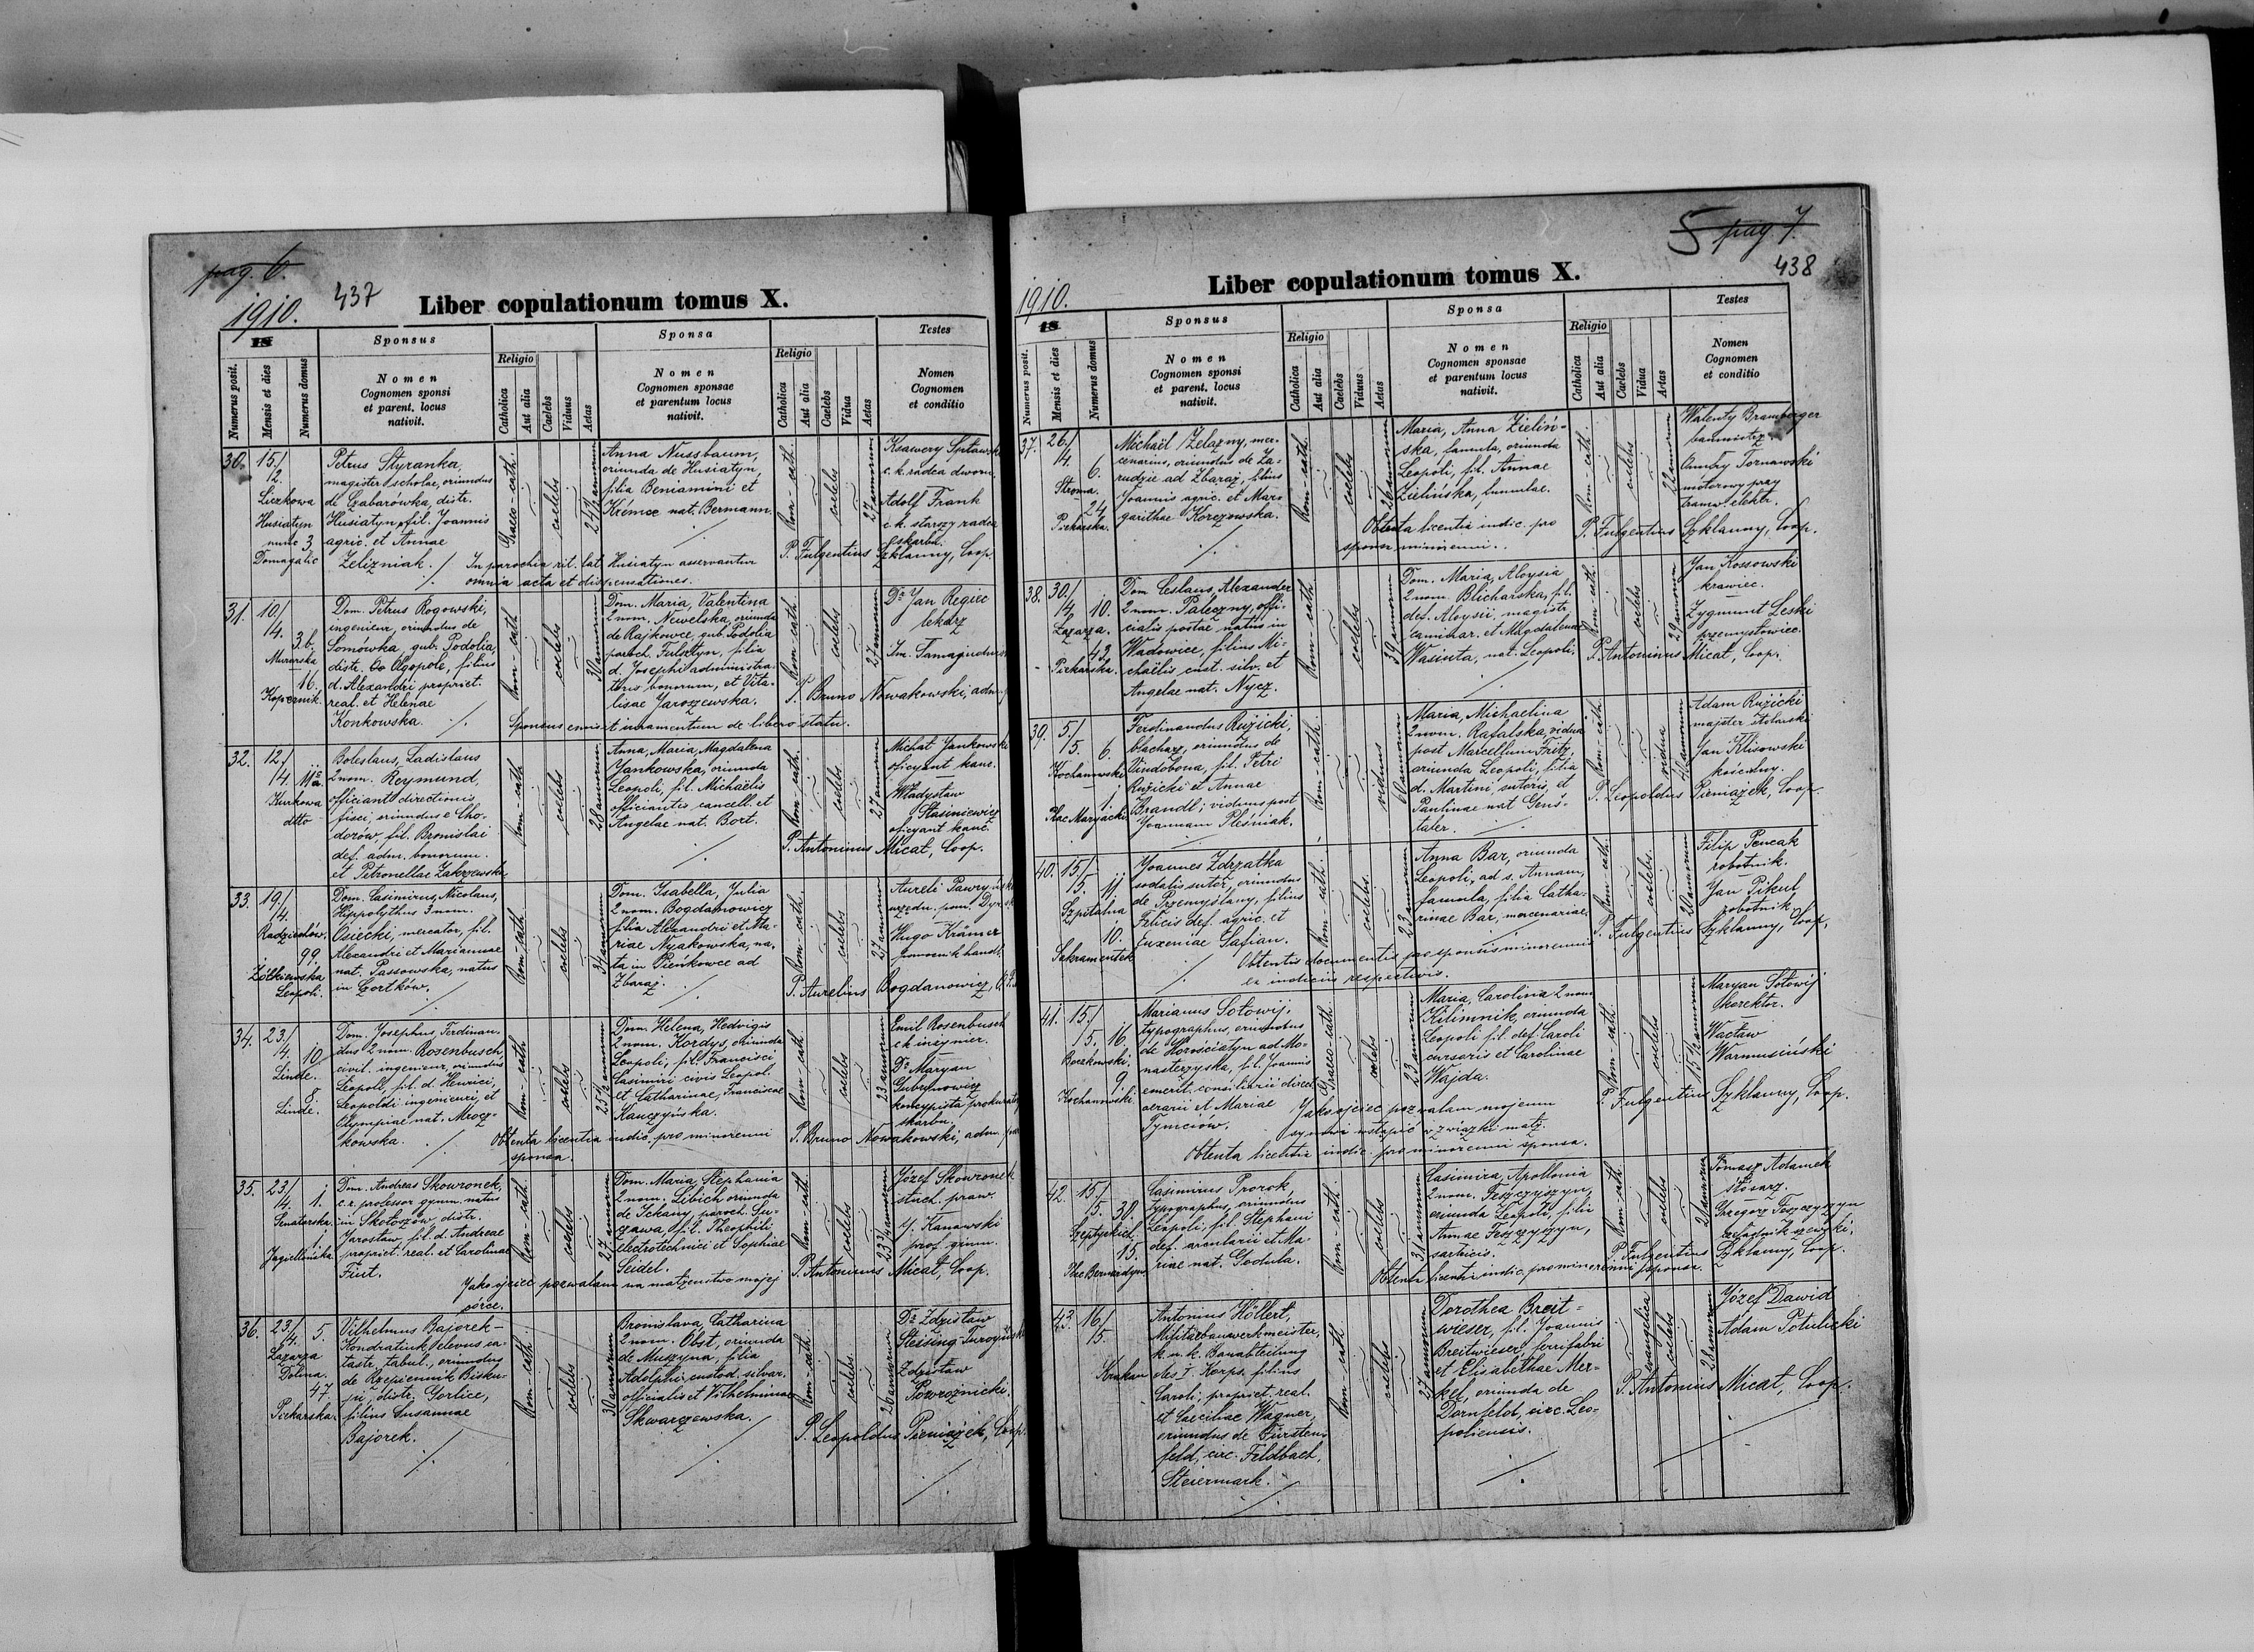 pag. 6.
437
1910.
Liber copulationum tomus X.
18
Numerus posit.
Mensis et dies
Numerus domus
Sponsus
Nomen
Cognomen sponsi
et parent. locus
nativit.
Religio
Catholica
Aut alia
Caelebs
Viduus
Aetas
Sponsa
Nomen
Cognomen sponsae
et parentum locus
nativit.
Religio
Catholica
Aut alia
Caelebs
Vidua
Aetas
Testes
Nomen
Cognomen
et conditio
30. 15./
2.
Liczkowa
Husiatyn
nunc 3
Domagalic
Petrus Styranka,
magister scholae, oriundus
de Czabarówka, distr.
Husiatyn, fil. Joannis
agric. et Annae
Zelizniak.
Graeco-cath.
caelebs
24 1/2 annorum
Anna Nussbaum,
oriunda de Husiatyn,
filia Beniamini et
nat. Bermann.
Rom-cath.
caelebs
27 annorum
Ksawery
c. k. radca dworu.
Adolf Frank
c. k. starszy radca
skarbu.
P. Fulgentius Szklanny, Coop.
In parochia rit. lat. Husiatyn asservantur
omnia acta et dispensationes.
31. 10./
14.
3.b.
Murarska
16.
Kopernik.
Dom. Petrus Rogowski,
ingenieur, oriundus de
Somówka, gub. Podolia,
distr. Olgopole, filius
d. Alexandri propriet.
real. et Helenae
Konkowska.
Rom-cath
caelebs
30 annorum
Dom. Maria, Valentina
2 nom. Newelska, oriunda
de Rajkowce, gub. Podolia
paroch. filia
d. Josephi administra-
toris bonorum, et Vita-
lisae Jaroszewska.
Rom-cath.
caelebs
27 annorum
Dr Jan Regiec
lekarz
P. Bruno Nowakowski, adm.
Sponsus emisit iuramentum de libero statu.
32. 12./
14
11a
Kurkowa
dtto
Boleslaus, Ladislaus
2 nom. Reymund,
officiant directionis
fisci, oriundus e Cho-
dorów, fil. Bronislai
def. adm. bonorum
et Petronellae Zakrzewska
Rom-cath
caelebs
28 annorum
Anna, Maria, Magdalena
Jankowska, oriunda
Leopoli, fil. Michaëlis
officiantis cancell. et
Angelae nat. Bort.
Rom-cath.
caelebs
27 annorum
Michał Jankowski
oficyant kanc.
Władysław
Stasiniewicz
oficyant kanc.
P. Antoninus Micat, Coop.
33. 19./
14.
Radziechów.
99.
Żółkiewska
Leopoli.
Dom. Casimirus, Nicolaus,
Hippolythus 3 nom.
Osiecki, mercator, fil.
Alexandri et Mariannae
nat. Passowska, natus
in Czortków.
Rom-cath.
caelebs
34 annorum
Dom. Isabella, Julia
2 nom. Bogdanowicz
filia Alexandri et Ma-
riae Nyakowska, na-
ta in Pieńkowce ad
Zbaraż.
Rom-cath.
caelebs
27 annorum
Aureli
Hugo Krämer
pomocnik handl.
P. Aurelius Bogdanowicz,
34. 23./
14.
10
Linde.
8.
Linde.
Dom. Josephus, Ferdinan-
dus 2 nom. Rosenbusch,
civil. ingenieur, oriundus
Leopoli, fil. d. Henrici,
Leopoldi ingenieuri, et
Olympiae nat. Mrocz-
kowska.
Rom-cath
caelebs
25 1/2 annorum
Dom. Helena, Hedvigis
2 nom. Kordys, oriunda
Leopoli, fil. Francisci
Casimiri civis Leopol.
et Catharinae, Franciscae
Kauczyńska.
Rom-cath.
caelebs
23 annorum
Emil Rosenbusch
ck inżynier.
Dr Maryan
Gubrynowicz
koncypista prokurat.
skarbu.
Obtenta licentia indic. pro minorenni
sponsa.
P. Bruno Nowakowski, adm.
35. 23/
14
1.
Senatorska.
1
Jagiellońska
Dom. Andreas Skowronek,
c.r. professor gymn. natus
in Skołoszów, distr.
Jarosław, fil. d. Andreae
propriet. real. et Carolinae
Fint.
Rom-cath.
caelebs
27 annorum
Dom. Maria, Stephania
2 nom. Libich oriunda
de Ickany, paroch. Su-
czawa, fil. Theophili
electrotechnici et Sophiae
Seidel.
Rom-cath.
caelebs
23 3/4 annorum
Józef Skowronek
stuch. praw.
J. Kanowski
prof. gimn.
P. Antoninus Micat, Coop.
Jako ojciec pozwalam na małżeństwo mojej
córce.
36. 23./
4.
5.
Łazarza
Dolina.
47
Piekarska.
Vilhelmus Bajorek-
Kondratiuk elevus ca-
tastr. tabul., oriundus
de Rzepiennik Bisku-
pi, distr. Gorlice,
filius Susannae
Bajorek.
Rom-cath
caelebs
30 annorum
Bronislava, Catharina
2 nom. Obst, oriunda
de Muszyna, filia
Adolphi, custod. silvar.
officialis et Vilhelminae
Skwarczewska.
Rom-cath.
caelebs.
26 annorum
Dr Zdzisław
Zdzisław
Powroźnicki.
P. Leopoldus Pieniążek, Coop.
5 pag 7.
438
1910.
Liber copulationum tomus X.
18
Numerus posit.
Mensis et dies
Numerus domus
Sponsus
Nomen
Cognomen sponsi
et parent. locus
nativit.
Religio
Catholica
Aut alia
Caelebs
Viduus
Aetas
Sponsa
Nomen
Cognomen sponsae
et parentum locus
nativit.
Religio
Catholica
Aut alia
Caelebs
Vidua
Aetas
Testes
Nomen
Cognomen
et conditio
37. 26./
14.
6.
Stroma.
24
Piekarska.
Michaël Żelazny, mer-
cenarius, oriundus de Za-
rudzie ad Zbaraż, filius
Joannis agric. et Mar-
garithae Korczowska.
Rom-cath.
caelebs
26 annorum
Maria, Anna Zieliń-
ska, famula, oriunda
Leopoli, fil. Annae
Zielińska, famulae.
Rom-cath.
caelebs
22 annorum
Walenty Bramberger
banmistrz.
Tarnawski
motorowy przy
tramw. elektr.
Obtenta licentia indic. pro
sponsa minorenni.
P. Fulgentius Szklanny, Coop.
38. 30./
14.
10.
Łazarza.
43
Piekarska
Dom. Ceslaus, Alexander
2 nom. Paleczny, offi-
cialis postae, natus in
Wadowice, filius Mi-
chaëlis cust. silv. et
Angelae nat. Nycz.
Rom-cath
caelebs
39 annorum
Dom. Maria, Aloysia
2 nom. Blicharska, fil.
def. Aloysii, magistr.
caminar. et Magdalenae
Wasiuta, nat. Leopoli.
Rom-cath.
caelebs
29 annorum
Jan Kossowski
krawiec.
Zygmunt Leski
przemysłowiec.
P. Antoninus Micat, Coop.
39. 5./
15.
6
Kochanowski
1
Plac Maryacki.
Ferdinandus Rużicki,
blacharz, oriundus de
Vindobona, fil. Petri
Rużicki et Annae
Brandl; viduus post
Joannam Pleśniak.
Rom-cath.
viduus
60 annorum
Maria, Michaelina
2 nom. Rafalska, vidua
post Marcellum Fritz,
oriunda Leopoli, filia
d. Martini, sutoris, et
Paulinae nat. Gens-
taler.
Rom-cath.
vidua
41 annorum
Adam Rużicki
majster stolarski
Jan Klisowski
kościelny.
P. Leopoldus Pieniążek, Coop.
40. 15./
5.
11
Szpitalna
10.
Sakramentek
Joannes Zdrzałka
sodalis sutor, oriundus
de Przemyślany, filius
Felicis def. agric. et
Euxeniae Safian.
Rom-cath.
caelebs.
23 annorum
Anna Bar, oriunda
Leopoli, ad s. Annam,
famula, filia Catha-
rinae Bar, mercenariae.
Rom-cath.
caelebs.
20 annorum
Filip Pencak
robotnik.
Jan Pikul,
robotnik
P. Fulgentius Szklanny, Coop.
Obtentis documentis pro sponsis minorennis
ex indiciis respectivis.
41. 15./
15.
16.
Boczkowski.
9
Kochanowski.
Marianus Sołowij,
typographus, oriundus
de Horościatyn ad Mo-
nasterzyska, fil. Joannis
emerit. consiliarii direct.
aerarii et Mariae
Tymciów.
Graeco-cath.
caelebs
23 annorum
Maria, Carolina 2 nom
Kilimnik, oriunda
Leopoli fil. def. Caroli
cursoris et Carolinae
Wajda.
Rom-cath.
caelebs
15 1/2 annorum
Maryan Sołowij
Korektor.
Wacław
Warmusiński
P. Fulgentius Szklanny, Coop.
Jako ojciec pozwalam mojemu
synowi wstąpić w związki małż.
Obtenta licentia indic. pro minorenni sponsa.
42. 15./
15.
30.
Szeptyckich
15.
Plac Bernardyn.
Casimirus Prorok,
typographus, oriundus
Leopoli, fil. Stephani
def. arentarii et Ma-
riae nat. Godula.
Rom-cath.
caelebs
31 annorum
Casimira, Apollonia
2 nom. Teszczyszyn,
oriunda Leopoli, filia
Annae Teszczyszyn,
sartricis.
Rom-cath.
caelebs
21 annorum
Tomasz Adamek
ślósarz.
Grzegorz Teszczyszyn
P. Fulgentius Szklanny, Coop.
Obtenta licentia indic. pro minorenni sponsa.
43. 16./
15.
Krakau
Antonius Költert,
Militärbauwerkmeister,
k. u. k. Bauabteilung
des I. Korps, filius
Caroli, propriet. real.
et Caeciliae Wagner,
oriundus de Fürsten-
feld, circ. Feldbach,
Steiermark.
Rom-cath
caelebs
27 annorum
Dorothea Breit-
wieser, fil. Joannis
Breitwieser, ferrifabri
et Elisabethae Mer-
kel, oriunda de
Dornfeld, circ. Leo-
poliensis.
evangelica
caelebs
21 annorum
Józef Dawid
Adam Potulicki
P. Antonius Micat, Coop.